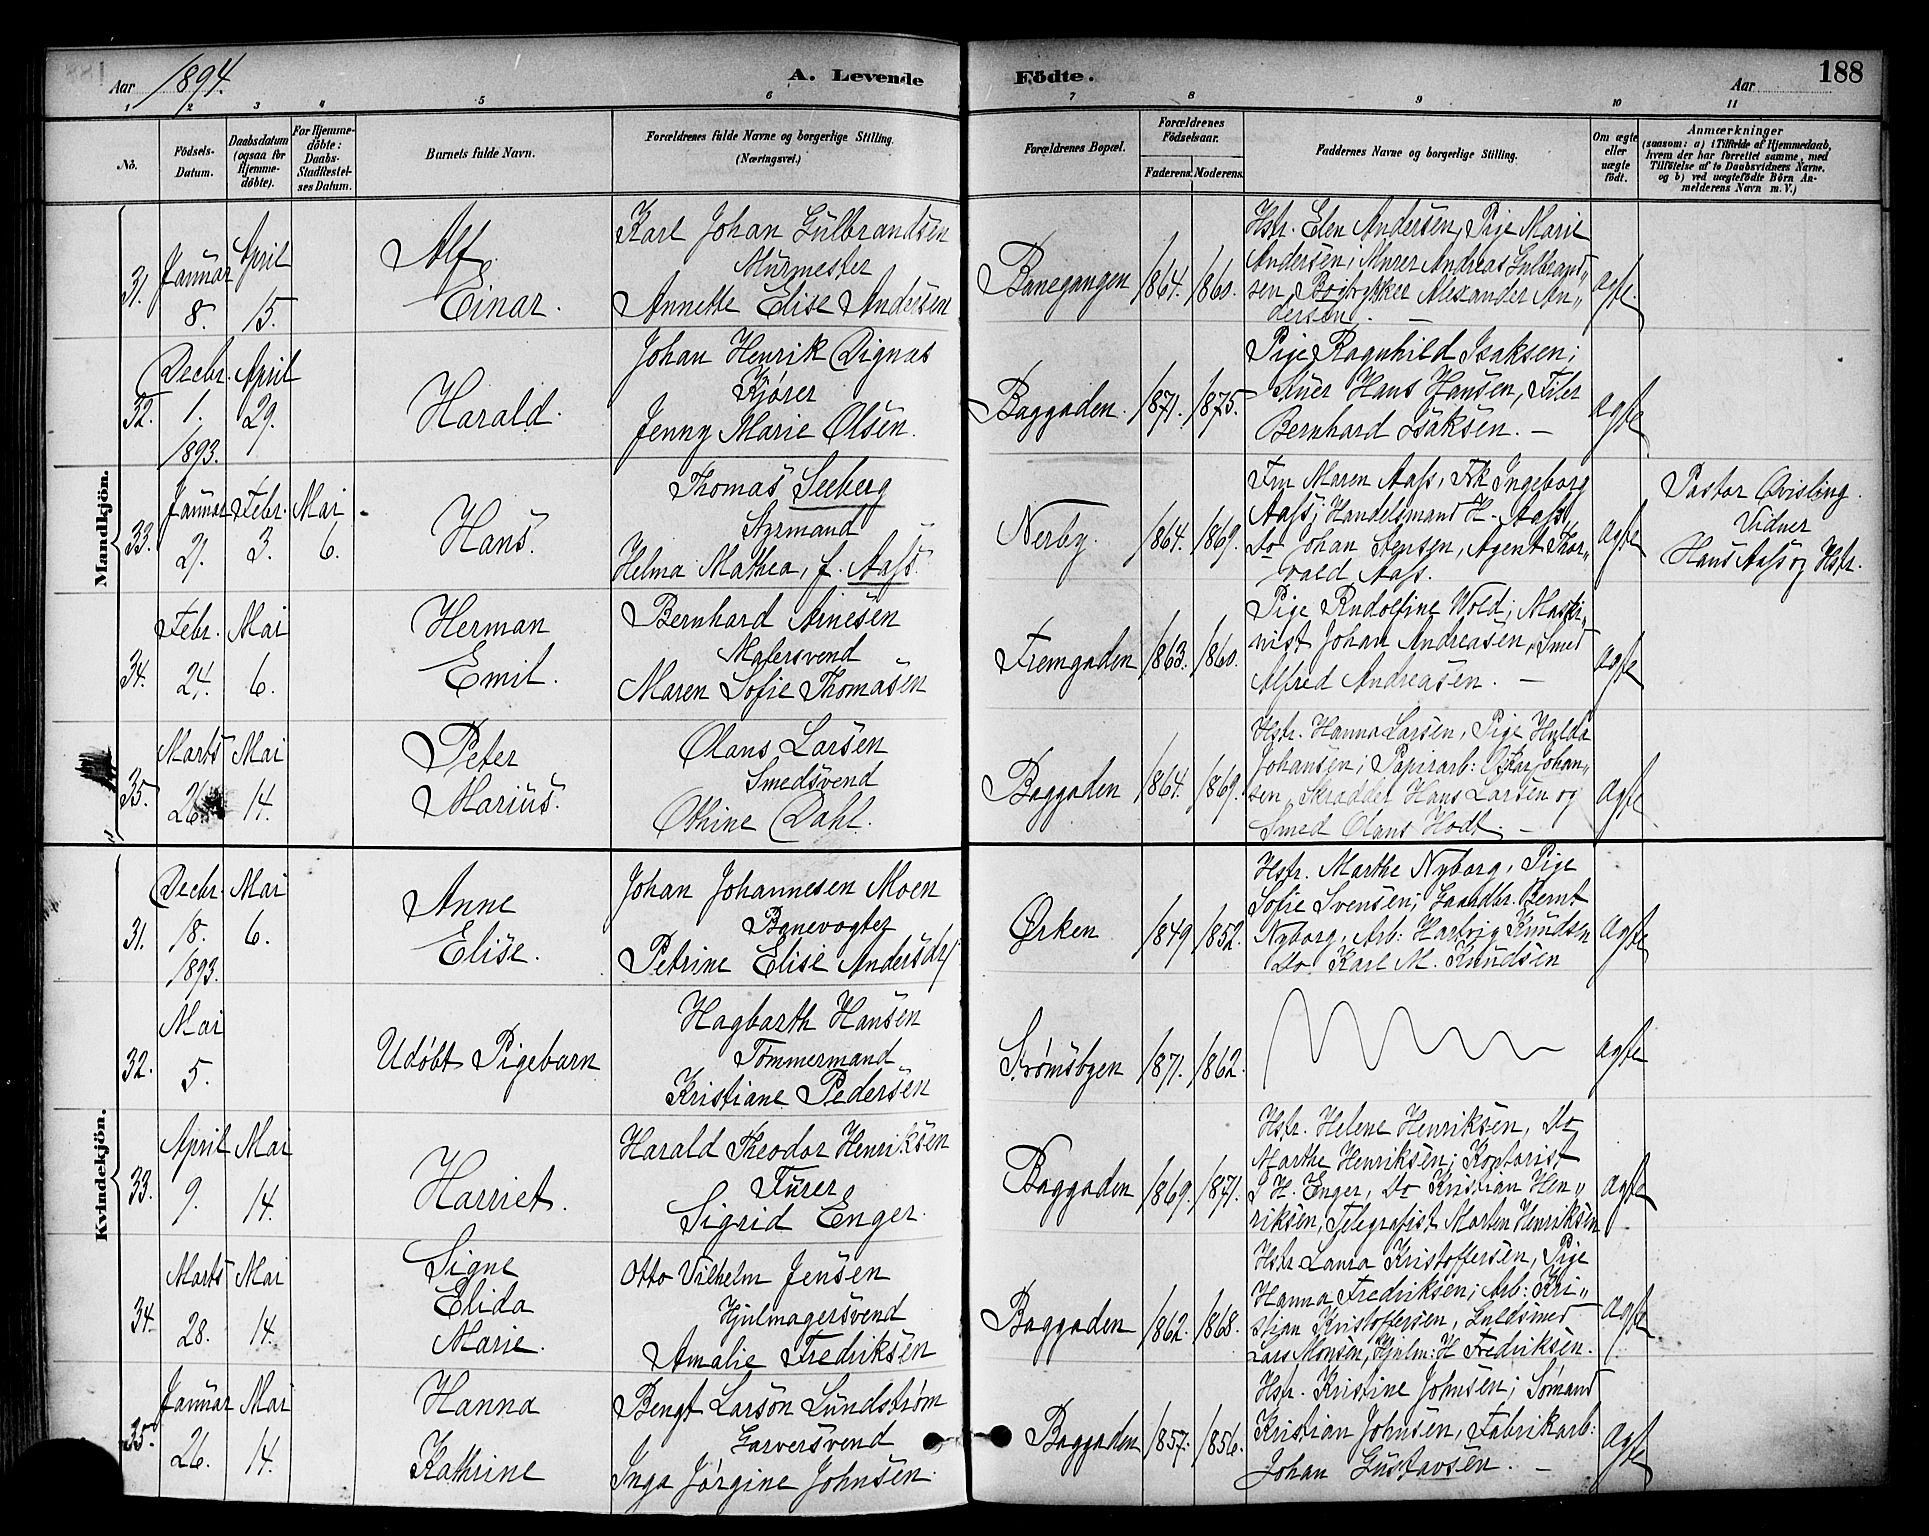 Aar 1894.
A. Levende
Födte.
Aar
188
1 2 3 4 5 6 7 8 9 10 11
No.
Födsels-
Datum.
Daabsdatum
(ogsaa for
Hjemme-
döbte).
For Hjemme-
döbte:
Daabs-
Stadfæstel-
ses Datum.
Barnets fulde Navn.
Forældrenes fulde Navne og borgerlige Stilling.
(Næringsvei.)
Forældrenes Bopæl.
Forældrenes
Födselsaar.
Faderens. Moderens.
Faddernes Navne og borgerlige Stilling.
Om ægte
eller
uægte
födt.
Anmærkninger
(saasom: a) i Tilfælde af Hjemmedaab,
hvem der har forrettet samme, med
Tilföielse af to Daabsvidners Navne,
og b) ved uægtefödte Börn An-
melderens Navn m. V.)
Mandkjön.
31.
Januar
8.
April
15.
Alf
Einar.
Karl Johan Gulbrandsen
Murmester
Annette Elise Andersen
Banegangen
1864. 1860.
Hstr. Elen Andersen, Pige Marie
Andersen; Murer Andreas Gulbrand„
sen, Bogtrykker Alexander An„
dersen. —
ægte.
32.
Decbr.
1.
1893.
April
29.
Harald.
Johan Henrik Dignas
Kjører
Jenny Marie Olsen.
Baggaden.
1871. 1875.
Pige Ragnhild Isaksen;
Stuer Hans Hansen, Filer
Bernhard Isaksen. —
ægte
33.
Januar
21.
Febr.
3.
Mai
6.
Hans.
Thomas Seeberg
Styrmand
Helma Mathea, f. Aass.
Nerby.
1864. 1869.
Fru Maren Aass, Frk Ingeborg
Aass; Handelsmand H. Aass,
Do Johan Stensen, Agent Thor„
vald Aass.
ægte
Pastor Qvisling.
Vidner
Hans Aass og Hstr.
34.
Febr.
24.
Mai
6.
Herman
Emil.
Bernhard Arnesen
Malersvend
Maren Sofie Thomasen
Fremgaden
1863. 1860.
Pige Rudolfine Wold; Maski„
nist Johan Andreasen, Smed
Alfred Andreasen. —
ægte
35.
Marts
26.
Mai
14.
Peter
Marius.
Olans Larsen
Smedsvend
Othine Dahl.
Baggaden
1864. 1869.
Hstr. Hanna Larsen, Pige Hulda
Johansen; Papirarb: Oskar Johan„
sen, Skrædder Hans Larsen og
Smed Olans Hodt. —
ægte
Kvindekjön.
31.
Decbr.
18.
1893.
Mai
6.
Anne
Elise.
Johan Johannesen Moen
Banevogter
Petrine Elise Andersdr/
Ørken
1849 1852.
Hstr. Marthe Nyborg, Pige
Sofie Svensen; Gaardbr. Bernt
Nyborg, Arb: Hartvig Knudsen
Do. Karl M. Knudsen
ægte
32.
Mai
5.
Udøbt Pigebarn
Hagbarth Hansen
Tømmermand
Kristiane Pedersen
Strømsbyen
1871. 1862.
ægte
33.
April
9.
Mai
14.
Harriet.
Harald Theodor Henriksen
Furer
Sigrid Enger.
Baggaden
1869. 1871.
Hstr. Helene Henriksen, Do
Marthe Henriksen; Kontorist
S. H. Enger, Do Kristian Hen„
riksen, Telegrafist Morten Henriksen
ægte
34.
Marts
28.
Mai
14.
Signe
Elida
Marie.
Otto Vilhelm Jensen
Hjulmagersvend
Amalie Fredriksen
Baggaden
1862. 1868.
Hstr Laura Kristoffersen, Pige
Hanna Fredriksen; Arb: Kri„
stian Kristoffersen, Guldsmed
Lars Monsen, Hjulm: H Fredriksen.
ægte
35.
Januar
26.
Mai
14.
Hanna
Kathrine
Bengt Larson Lundstrøm
Garversvend
Inga Jørgine Johnsen.
Baggaden
1857. 1856.
Hstr. Kristine Johnsen; Sømand
Kristian Johnsen, Fabrikarb:
Johan Gustavsen. —
ægte